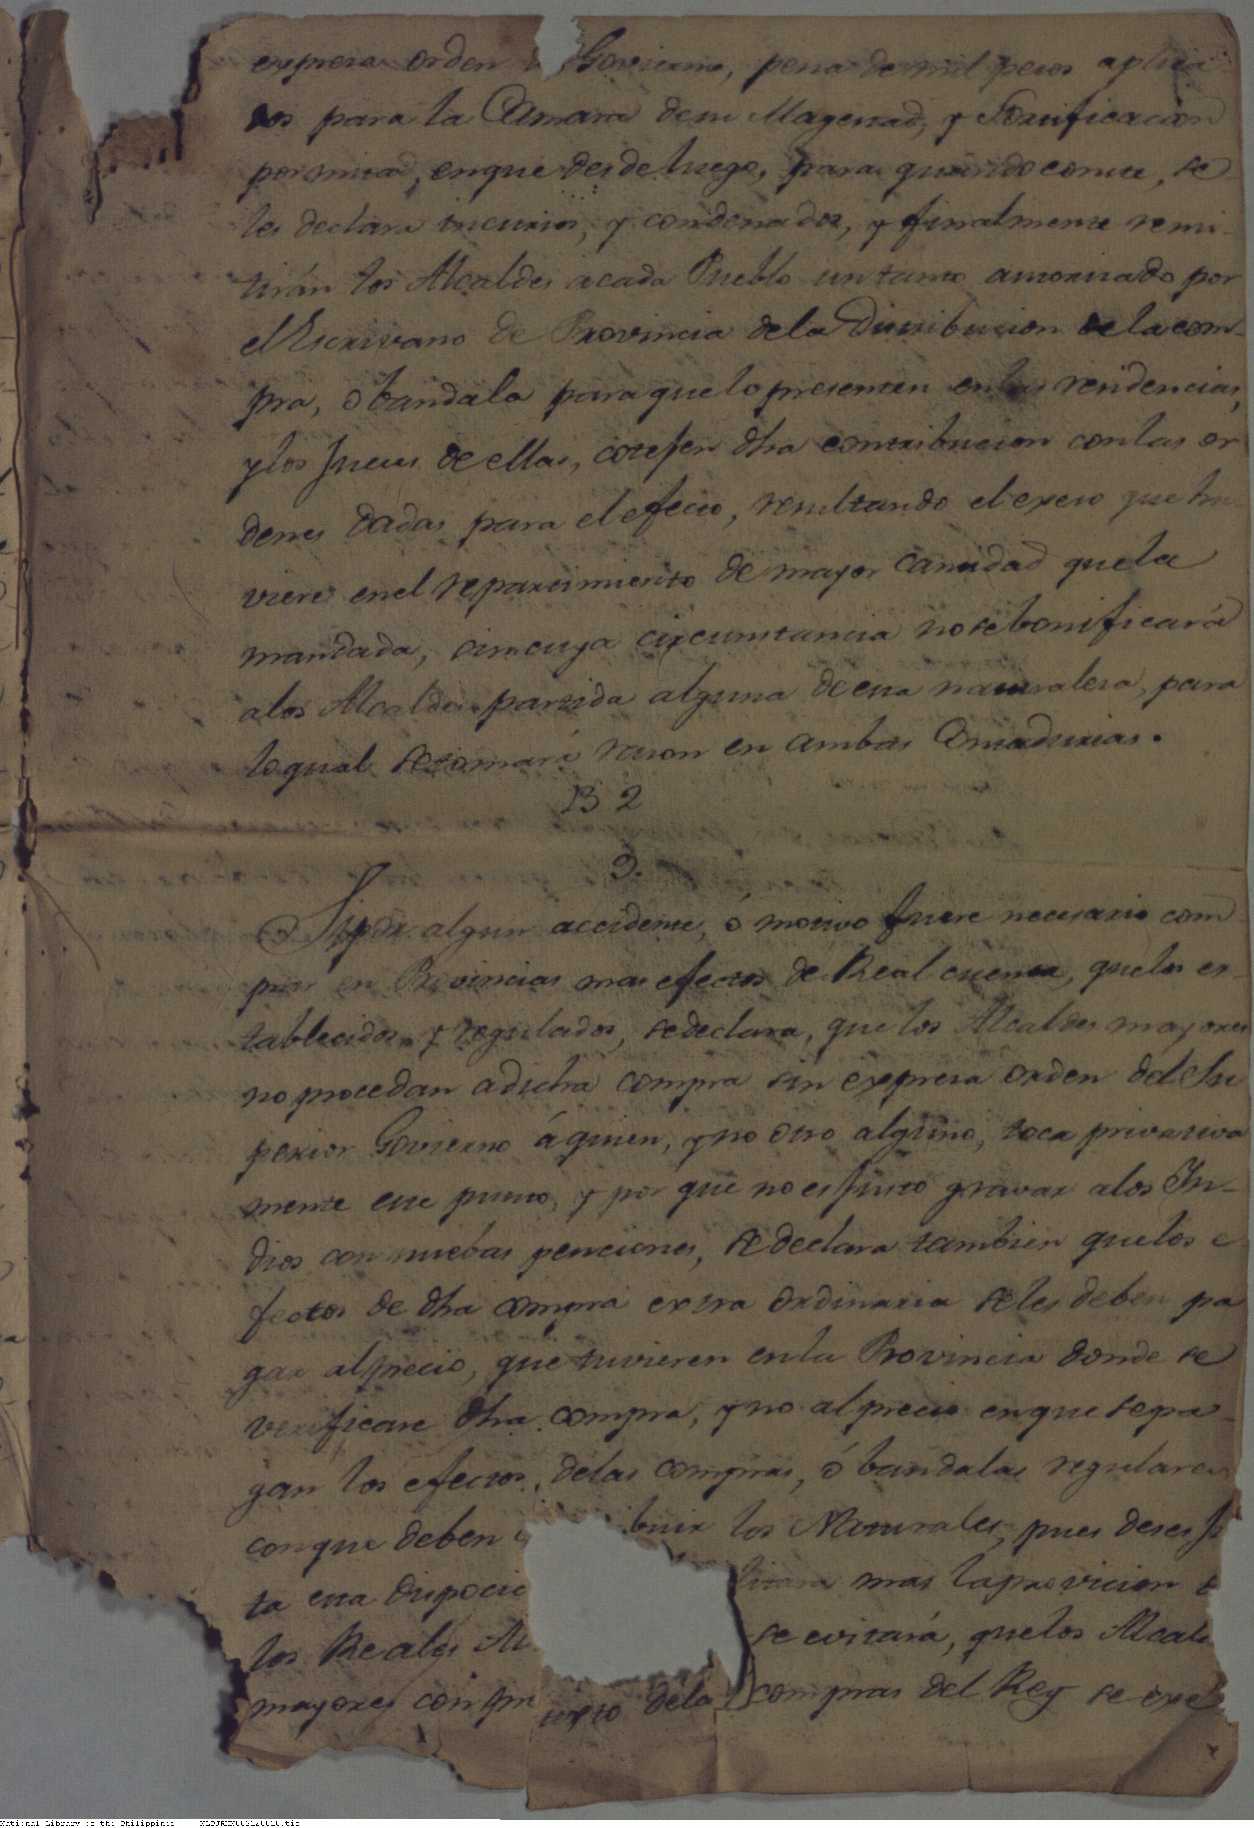 expresa orden Govierno, pena de mil pesos aplica-
dos para la Camara de su Magestad, y Fortificacion
por mitad, enque desde luego, para quando conste, se
les declara incursos, y condenados, y finalmente remi-
tirán los Alcaldes acada Pueblo un tanto autorizado por
el Escrivano de Provincia dela Distribucion de la com-
pra, ó bandala para que lo presenten enlas residencias,
ylos Jueces de ellas, cotejen dha contribucion conlas or
denes dadas para el efecto, resultando el exeso que hu
viere enel repartimiento de mayor cantidad quela
mandada, sin cuya circunstancia nose bonificará
alos Alcaldes partida alguna de esta naturalesa, para
loqual setomará rason en ambas Contadurias.
B 2
3.
Si por algun accidente, ó motivo fuere necesario com
prar en Provincias mas efectos de Real cuenta, quelos es-
tablecidos y regulados, sedeclara, que los Alcaldes mayores
no procedan adicha compra sin expresa orden del Su
perior Govierno á quien, y no otro alguno, toca privativa
mente este punto, y por que no es justo gravar alos Yn-
dios con nuebas penciones, se declara tambien quelos e
fectos de dha compra extra ordinaria seles deben pa
gar alprecio, que tuvieren enla Provincia donde se
verificare dha compra, y no alprecio enque sepa-
gan los efectos, delas compras, ó bandalas regulares
conque deben buir los Naturales, pues deses
ta esta dispocic mas laprovicion
los Reales Al se evitará, quelos Alcal
mayores con pre texto dela compras del Rey se exe
National Library of the Philippines